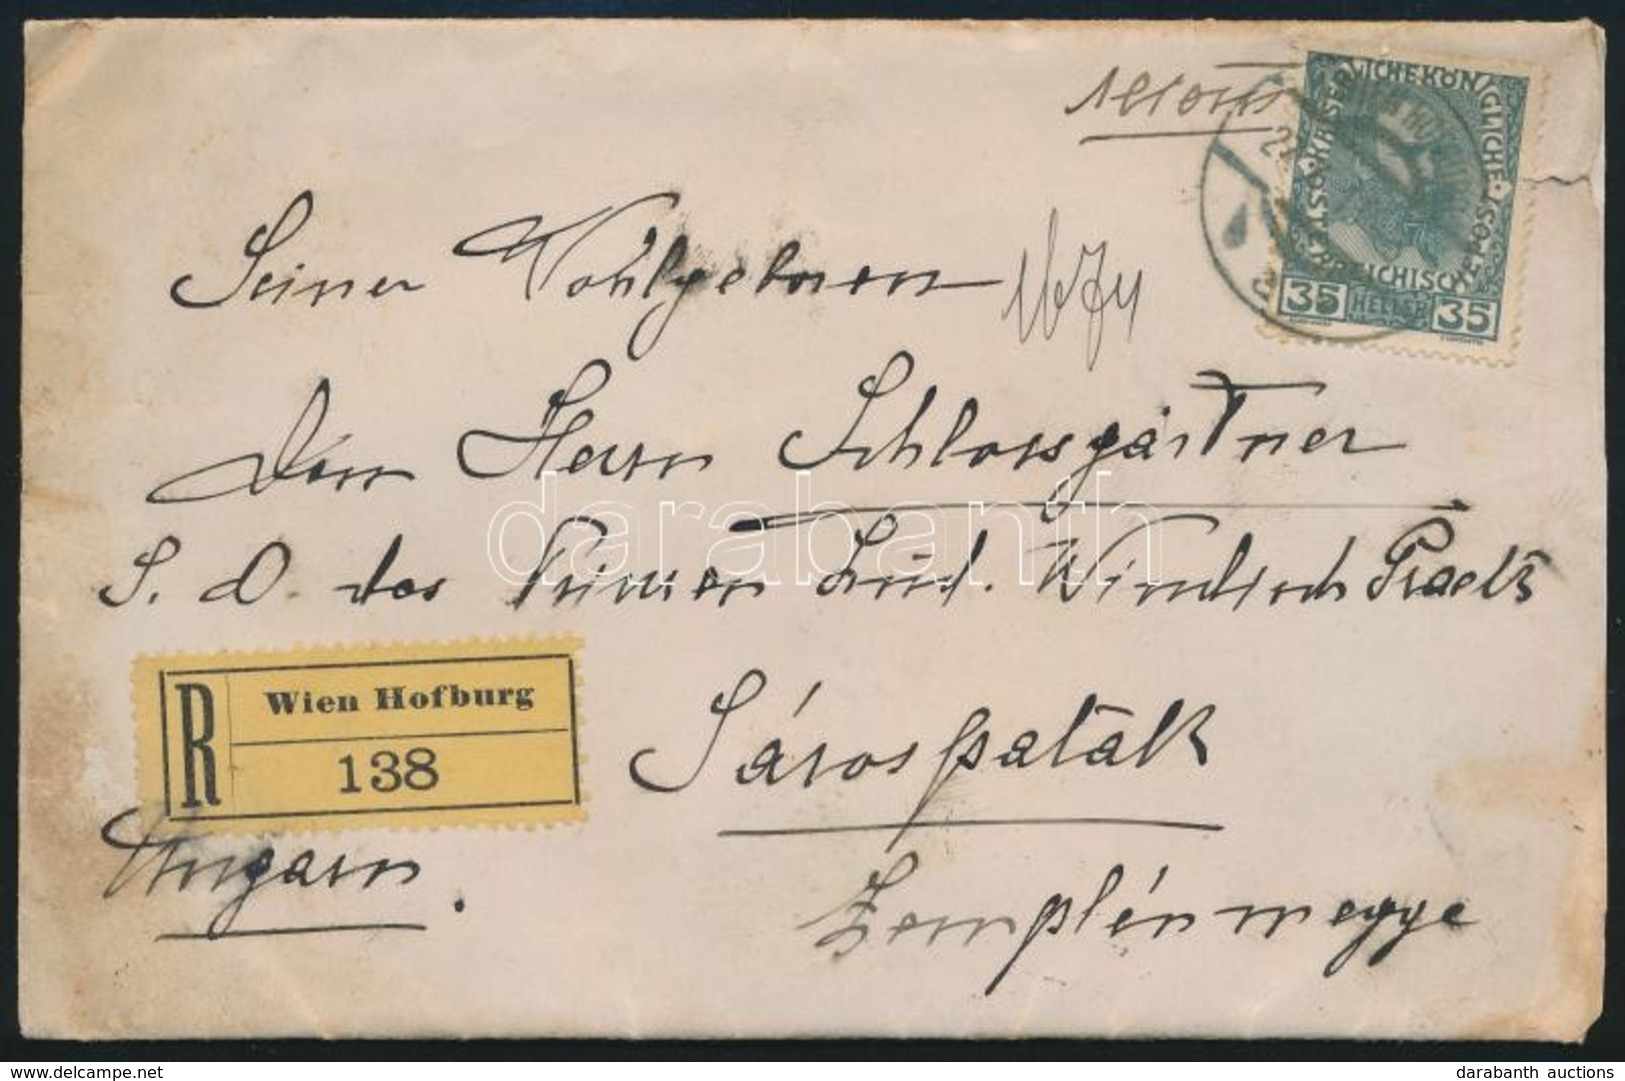 Seiner Wohlgeboren
Dem Herrn Schlossgärtner
S. D. des Prinzen Lud. Windisch Graetz
Sárospaták
Zemplénmegye
Ungarn.
R
Wien Hofburg
138
KAISERLICHE KÖNIGLICHE
ÖSTERREICHISCHE POST
35 HELLER 35
darabanth
darabanth auctions